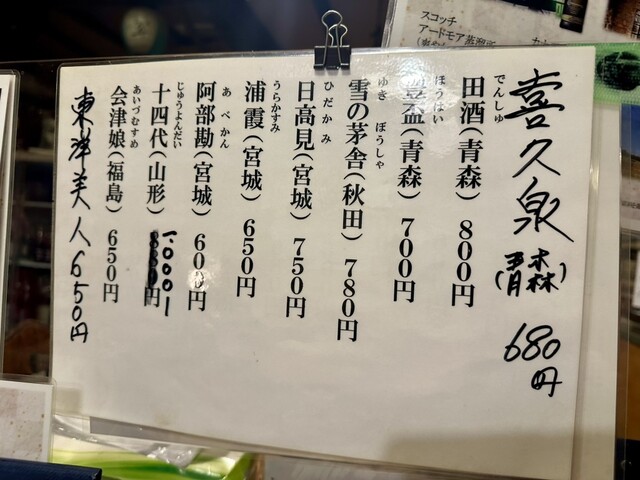 スコッチ
アードモア蒸溜所
喜久泉（青森）680円
でんしゅ
田酒（青森）800円
ほうはい
豊盃（青森）700円
ゆき ぼうしゃ
雪の茅舎（秋田）780円
ひだかみ
日高見（宮城）750円
うらかすみ
浦霞（宮城）650円
あべかん
阿部勘（宮城）600円
じゅうよんだい
十四代（山形）1.000ー
あいづむすめ
会津娘（福島）650円
東津美人650円